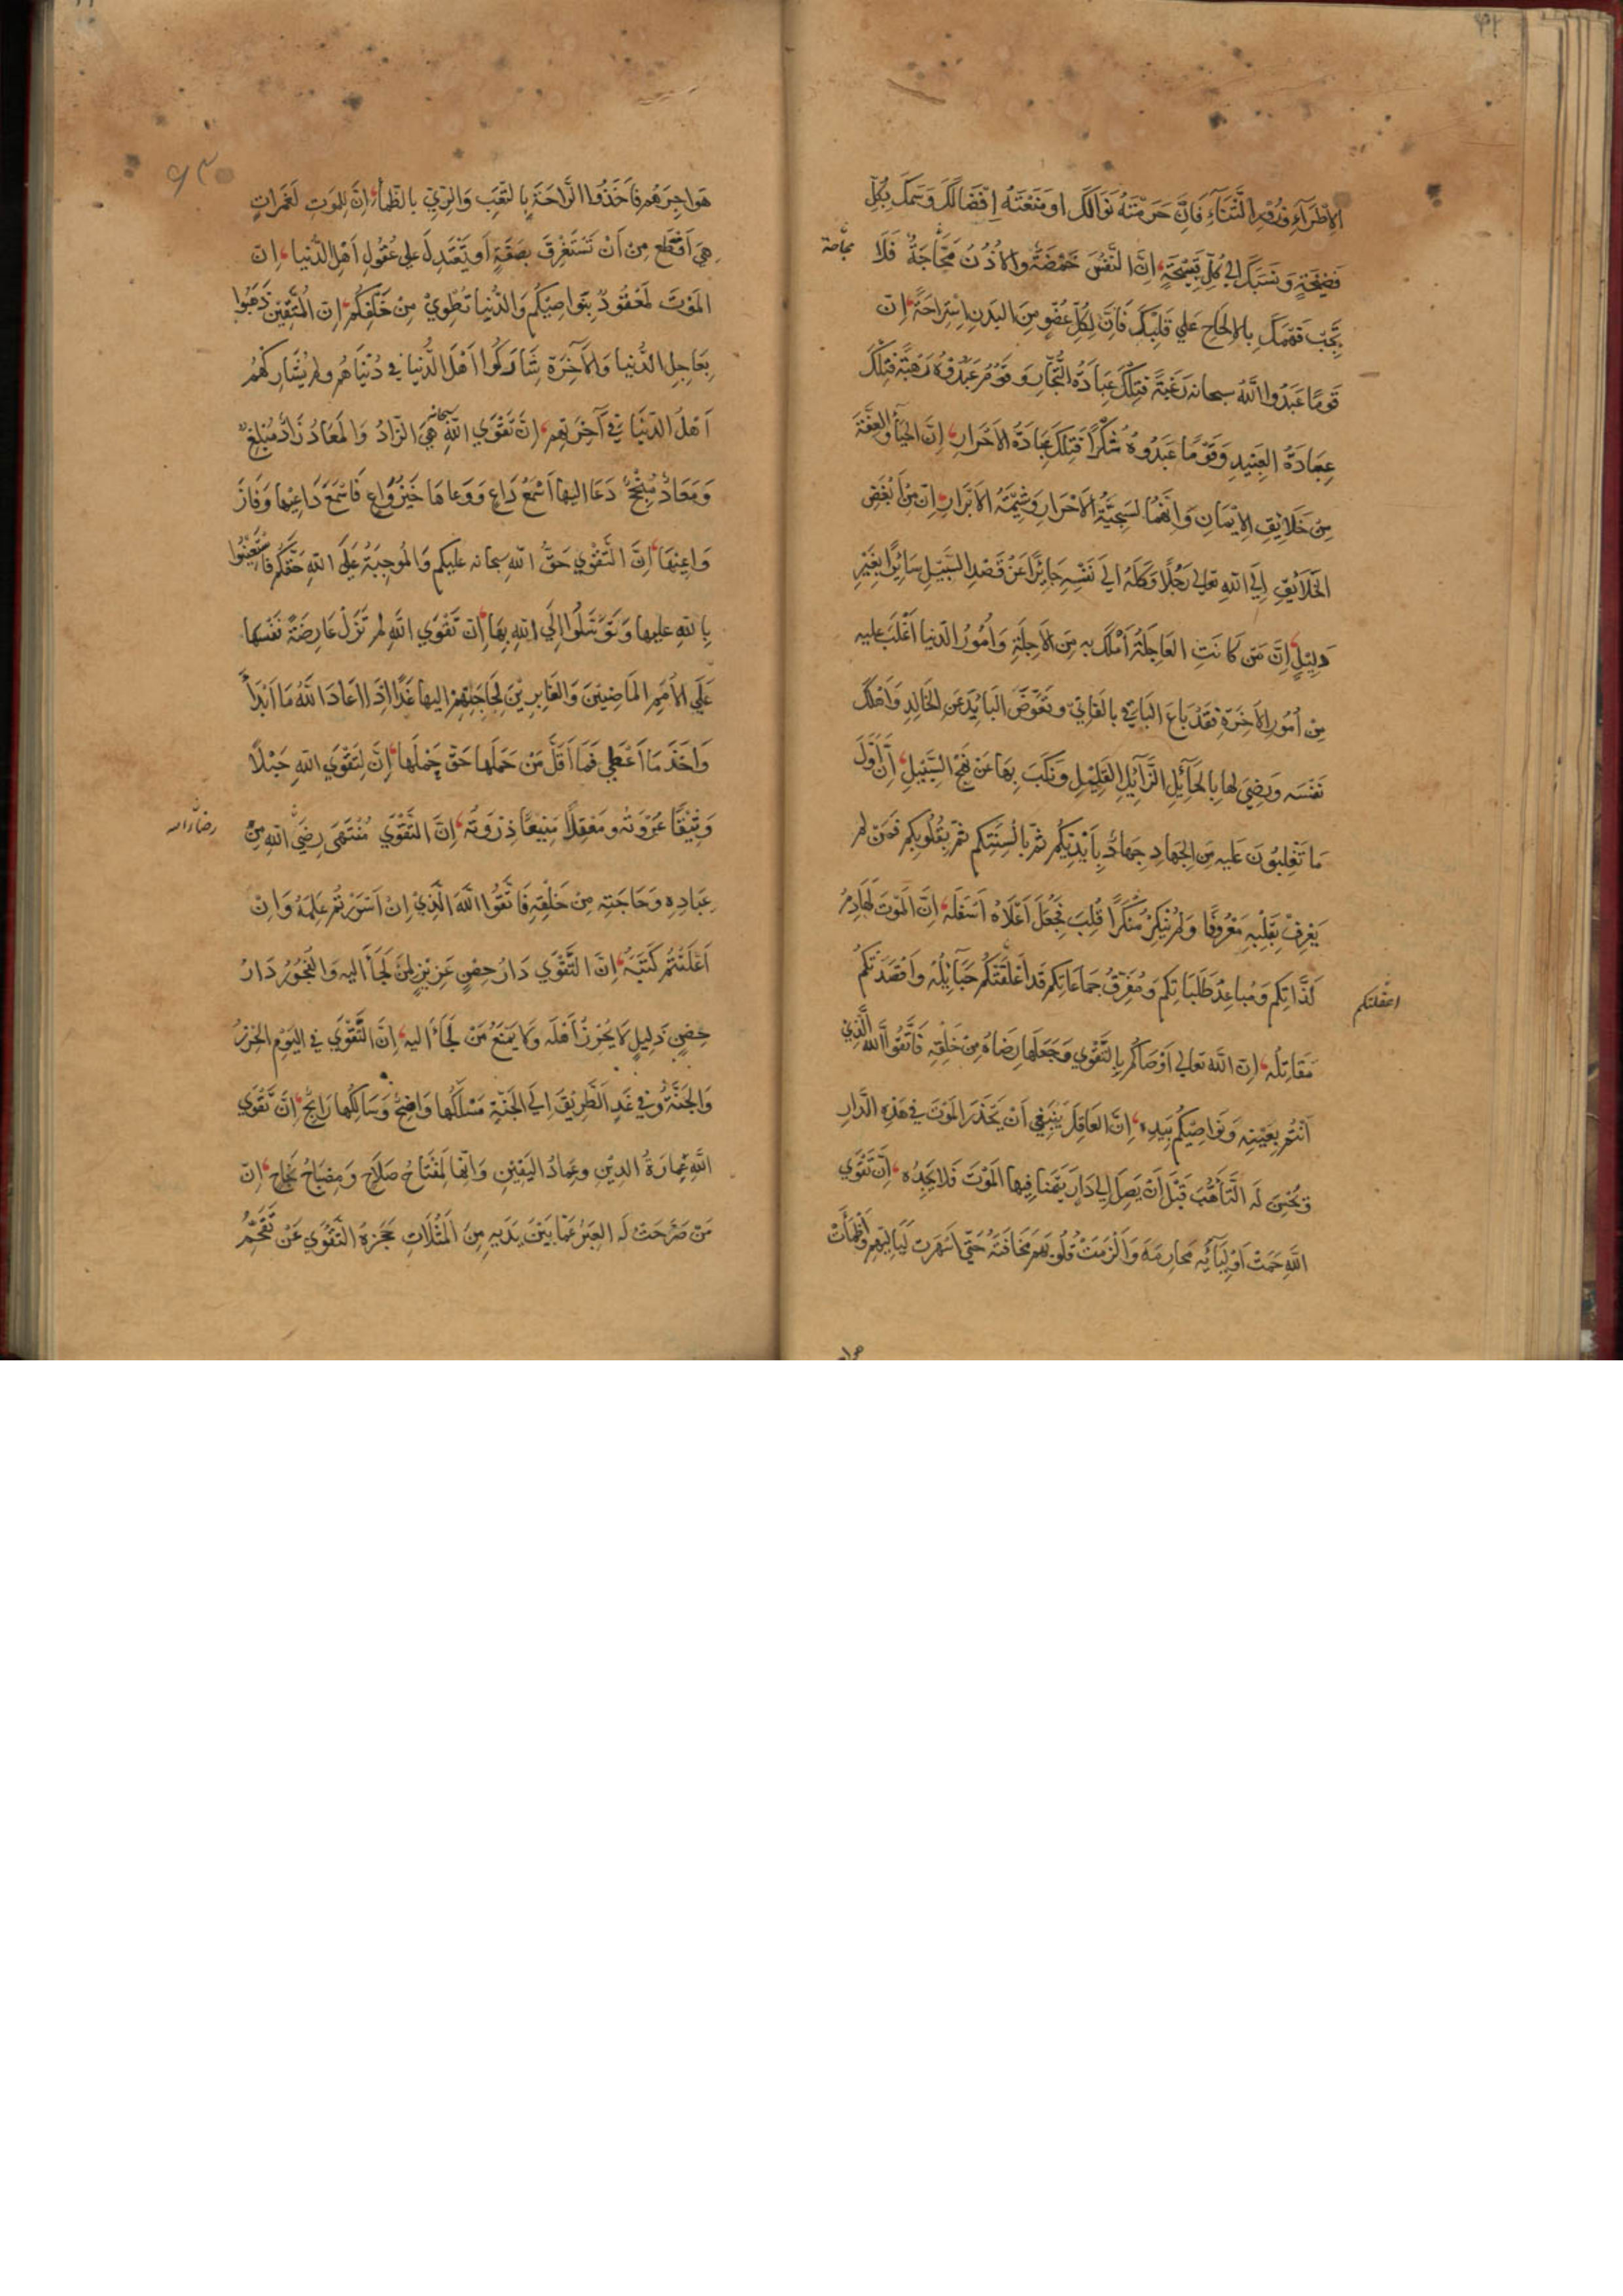 الاِطْرَاءِ وَزُوْرِ الثَّنَاءِ فَاِنَّ حَرَمْتَهُ نَوَالَكَ اَو مَنَعْتَهُ اِفْضَالَكَ وَسَمَكَ بِكُلِّ
فَضِيْحَةٍ وَنَسَبَكَ اِلٰى كُلِّ قَبِيْحَةٍ اِنَّ النَّفْسَ حَمْضَةٌ وَالاُذُنُ مَجَّاجَةٌ فَلَا
مجاجة
تَجُبّ فَهْمَكَ بِالاِلحَاحِ عَلٰي قَلْبِكَ فَاِنَّ لِكُلِّ عُضْوٍ مِنَ البَدَنِ اِسْتِرَاحَةً اِنَّ
قَوْمًا عَبَدُوا اللّٰهَ سبحانه رَغْبَةً فَتِلْكَ عِبَادَةُ التُّجَّارِ وَقَوْمٌ عَبَدُوْهُ رَهْبَةً فَتِلْكَ
عِبَادَةُ العَبِيْدِ وَقَوْمًا عَبَدُوهُ شُكْرًا فَتِلْكَ عِبَادَةُ الاَحْرَارِ اِنَّ الحَيَاءَ وَالعِفَّةَ
مِنْ خَلَائِقِ الاِيْمَانِ وَاِنَّهُمَا لَسَجِيَّةُ الاَحْرَارِ وَشِيْمَةُ الاَبْرَارِ اِنَّ مِنْ اَبْغَضِ
الخَلَائِقِ اِلَى اللّٰهِ تعالى رَجُلًا وَكَلَهُ اِلٰي نَفْسِهِ جَائِرًا عَنْ قَصْدِ السَّبِيْلِ سَائِرًا بِغَيْرِ
دَلِيْلٍ اِنَّ مَنْ كَانَتِ العَاجِلَةُ اَمْلَكَ بِهِ مِنَ الآجِلَةِ وَاُمُوْرُ الدنيا اَغْلَبَ عليه
مِنْ اُمُوْرِ الآخِرَةِ فَقَدْ بَاعَ البَاقِيَ بِالفَانِيْ وَتَعَوَّضَ البَائِدَ عَنِ الخَالِدِ وَاَهْلَكَ
نَفْسَه وَرَضِيَ لَهَا بِالحَائِلِ الزَّائِلِ القَلِيْلِ وَنَكَبَ بِهَا عَنْ نَهْجِ السَّبِيْلِ اِنَّ اَوَّلَ
مَا تَغْلِبُوْنَ عَلَيْهِ مِنَ الجِهَادِ جِهَادٌ بِاَيْدِيْكُمْ ثُمَّ بِاَلْسِنَتِكُم ثُمَّ بِقُلُوْبِكُم فَمَنْ لَم
يَعْرِفْ بِقَلْبِهِ مَعْرُوْفًا وَلَمْ يُنْكِرْ مُنْكَرًا قُلِبَ فَجُعِلَ اَعْلَاهُ اَسْفَلَهُ اِنَّ المَوْتَ لَهَادِمُ
لَذَّاتِكُم وَمُبَاعِدُ طَلِبَاتِكُم وَمُفَرِّقُ جَمَاعَاتِكُم قَد اَعْلَقَتْكُم حَبَائِلُهُ وَاَقْصَدَتْكُم
اعقلتكم
مَقَاتِلُه اِنَّ اللّٰهَ تعالى اَوْصَاكُم بِالتَّقْوٰي وَجَعَلَهَا رِضَاهُ مِنْ خَلْقِهِ فَاتَّقُوا اللّٰهَ الَّذِيْ
اَنْتُم بِعَيْنِهِ وَنَوَاصِيْكُم بِيَدِهِ اِنَّ العَاقِلَ يَنْبَغِي اَنْ يَحْذَرَ المَوْتَ فِي هٰذِهِ الدَّارِ
وَيُحْسِنَ لَهُ التَّاَهُّبَ قَبْلَ اَنْ يَصِلَ اِلٰي دَارٍ يَتَمَنَّا فِيْهَا المَوْتَ فَلَا يَجِدُهُ اِنَّ تَقْوَي
اللّٰهِ حَمَتْ اَوْلِيَائَهُ مَحَارِمَهُ وَاَلْزَمَتْ قُلُوْبَهُم مَخَافَتَهُ حَتّٰي اَسْهَرَت لَيَالِيَهُم وَاَظْمَأَتْ
هواجر
هَوَاجِرَهُم فَاَخَذُوا الرَّاحَةَ بِالتَّعَبِ وَالرِّيَّ بِالظَّمَأِ اِنَّ لِلمَوتِ لَغَمَرَاتٍ
هِيَ اَفْظَع مِنْ اَنْ تُسْتَغْرَقَ بِصِفَةٍ اَو تَعْتَدِلَ عَلٰي عُقُوْلِ اَهْلِ الدُّنْيَا اِنَّ
المَوْتَ لَمَعْقُوْدٌ بِنَوَاصِيْكُم وَالدُّنْيَا تُطْوِيْ مِنْ خَلْفِكُم اِنَّ المُتَّقِيْنَ ذَهَبُوا
بِعَاجِلِ الدُّنْيَا وَالآخِرَةِ شَارَكُوا اَهْلَ الدُّنْيَا فِي دُنْيَاهُم وَلَم يُشَارِكْهُمْ
اَهْلُ الدُّنْيَا فِي آخِرَتِهِم اِنَّ تَقْوَي اللّٰهِ سبحانه هِيَ الزَّادُ وَالمَعَادُ زَادٌ مُبْلِغٌ
وَمَعَادٌ مُنْجِحٌ دَعَا اِلَيْهَا اَسْمَعُ دَاعٍ وَوَعَاهَا خَيْرُ وَاعٍ فَاَسْمَعَ دَاعِيْهَا وَفَازَ
وَاعِيْهَا اِنَّ التَّقْوٰي حَقُّ اللّٰهِ سبحانه عليكم وَالمُوجِبَةُ عَلَى اللّٰهِ حَقَّكُم فَاسْتَعِيْنُوا
بِاللّٰهِ عليها وَتَوَسَّلُوا اِلَى اللّٰهِ بِهَا اِنَّ تَقْوَي اللّٰهِ لم تَزَلْ عَارِضَةً نَفْسَهَا
عَلَي الاُمَمِ المَاضِيْنَ وَالغَابِرِيْنَ لِحَاجَتِهِمْ اليها غَدًا اِذَا اَعَادَ اللّٰهُ مَا اَبْدَأَ
وَاَخَذَ مَا اَعْطٰي فَمَا اَقَلَّ مَنْ حَمَلَهَا حَقَّ حَمْلِهَا اِنَّ لِتَقْوَي اللّٰهِ حَبْلًا
وَثِيْقًا عُرْوَتُهُ وَمَعْقِلًا مَنِيْعًا ذِرْوَتُهُ اِنَّ التَّقْوٰي مُنْتَهَى رِضَي اللّٰهِ مِنْ
رضاء الله
عِبَادِهِ وَحَاجَتِهِ مِنْ خَلْقِهِ فَاتَّقُوا اللّٰهَ الَّذِيْ اِنْ اَسْرَرْتُم عَلِمَهُ وَاِنْ
اَعْلَنْتُم كَتَبَهُ اِنَّ التَّقْوٰي دَارُ حِصْنٍ عَزِيْزٍ لِمَنْ لَجَأَ اليه وَالفُجُوْرُ دَارُ
حِصْنٍ ذَلِيْلٍ لَا يُحْرِزُ اَهْلَه وَلَا يَمْنَعُ مَنْ لَجَأَ اليه اِنَّ التَّقْوٰي فِي اليَوْمِ الحِرْزُ
وَالجُنَّةُ وَفِي غَدٍ الطَّرِيْقُ اِلَى الجَنَّةِ مَسْلَكُهَا وَاضِحٌ وَسَالِكُهَا رَابِحٌ اِنَّ تَقْوَي
اللّٰهِ عِمَارَةُ الدِّيْنِ وَعِمَادُ اليَقِيْنِ وَاِنَّهَا لَمِفْتَاحُ صَلَاحٍ وَمِصْبَاحُ نَجَاحٍ اِنَّ
مَنْ صَرَّحَتْ لَهُ العِبَرُ عَمَّا بَيْنَ يَدَيْهِ مِنَ المَثُلَاتِ حَجَزَهُ التَّقْوٰي عَنْ تَقَحُّمِ